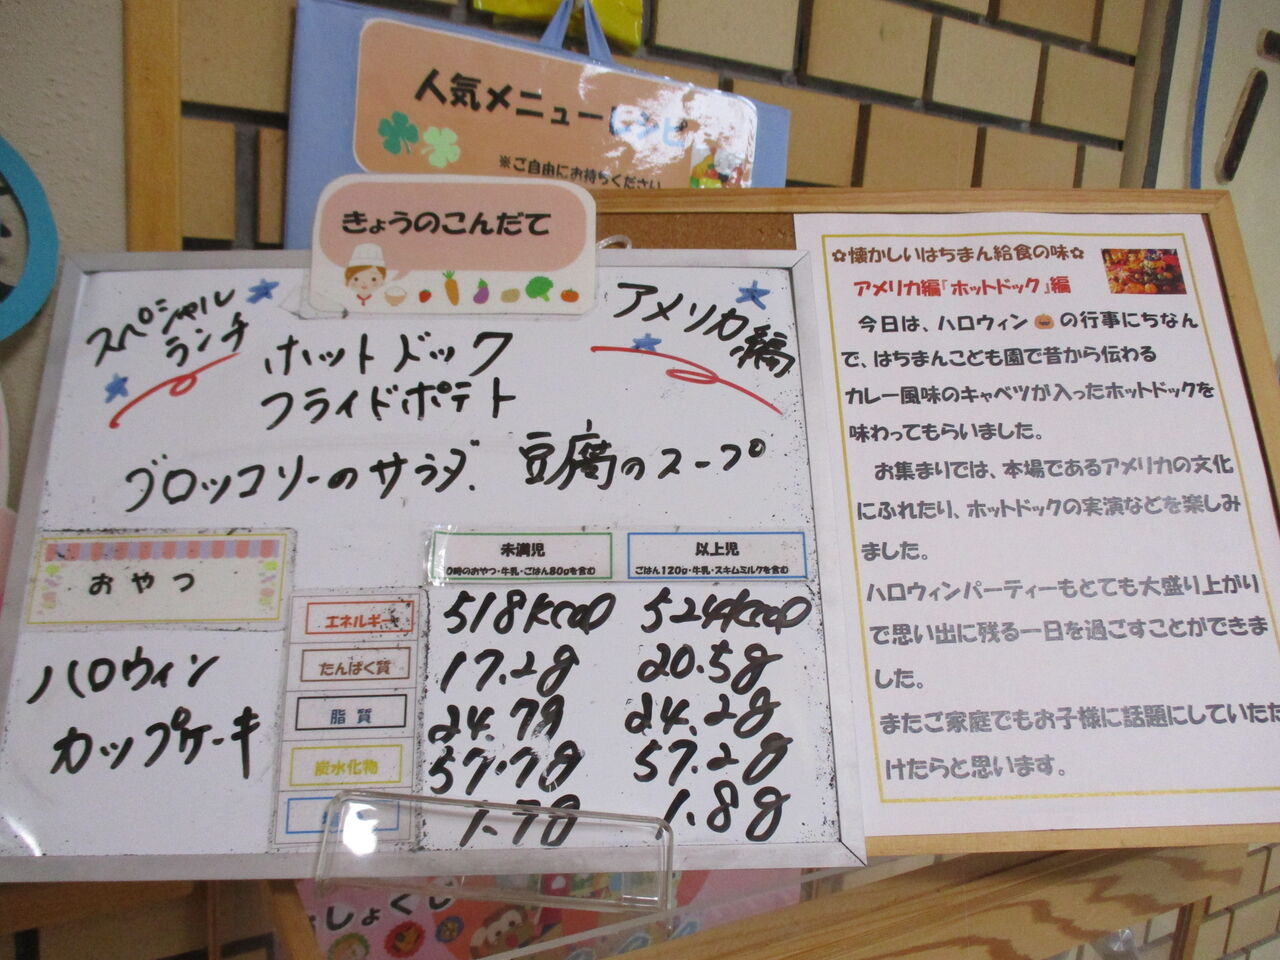 人気メニューレシピ
※ご自由にお持ちください
きょうのこんだて
スペシャル
ランチ
アメリカ編
ホットドック
フライドポテト
ブロッコリーのサラダ 豆腐のスープ
おやつ
ハロウィン
カップケーキ
未満児
0時のおやつ・牛乳・ごはん80gを含む
以上児
ごはん120g・牛乳・スキムミルクを含む
エネルギー 518kcal 524kcal
たんぱく質 17.2g 20.5g
脂質 24.7g 24.2g
炭水化物 57.7g 57.2g
1.7g 1.8g
✿懐かしいはちまん給食の味✿
アメリカ編『ホットドック』編
今日は、ハロウィン🎃の行事にちなん
で、はちまんこども園で昔から伝わる
カレー風味のキャベツが入ったホットドックを
味わってもらいました。
お集まりでは、本場であるアメリカの文化
にふれたり、ホットドックの実演などを楽しみ
ました。
ハロウィンパーティーもとても大盛り上がり
で思い出に残る一日を過ごすことができま
した。
またご家庭でもお子様に話題にしていただ
けたらと思います。
しょくじ